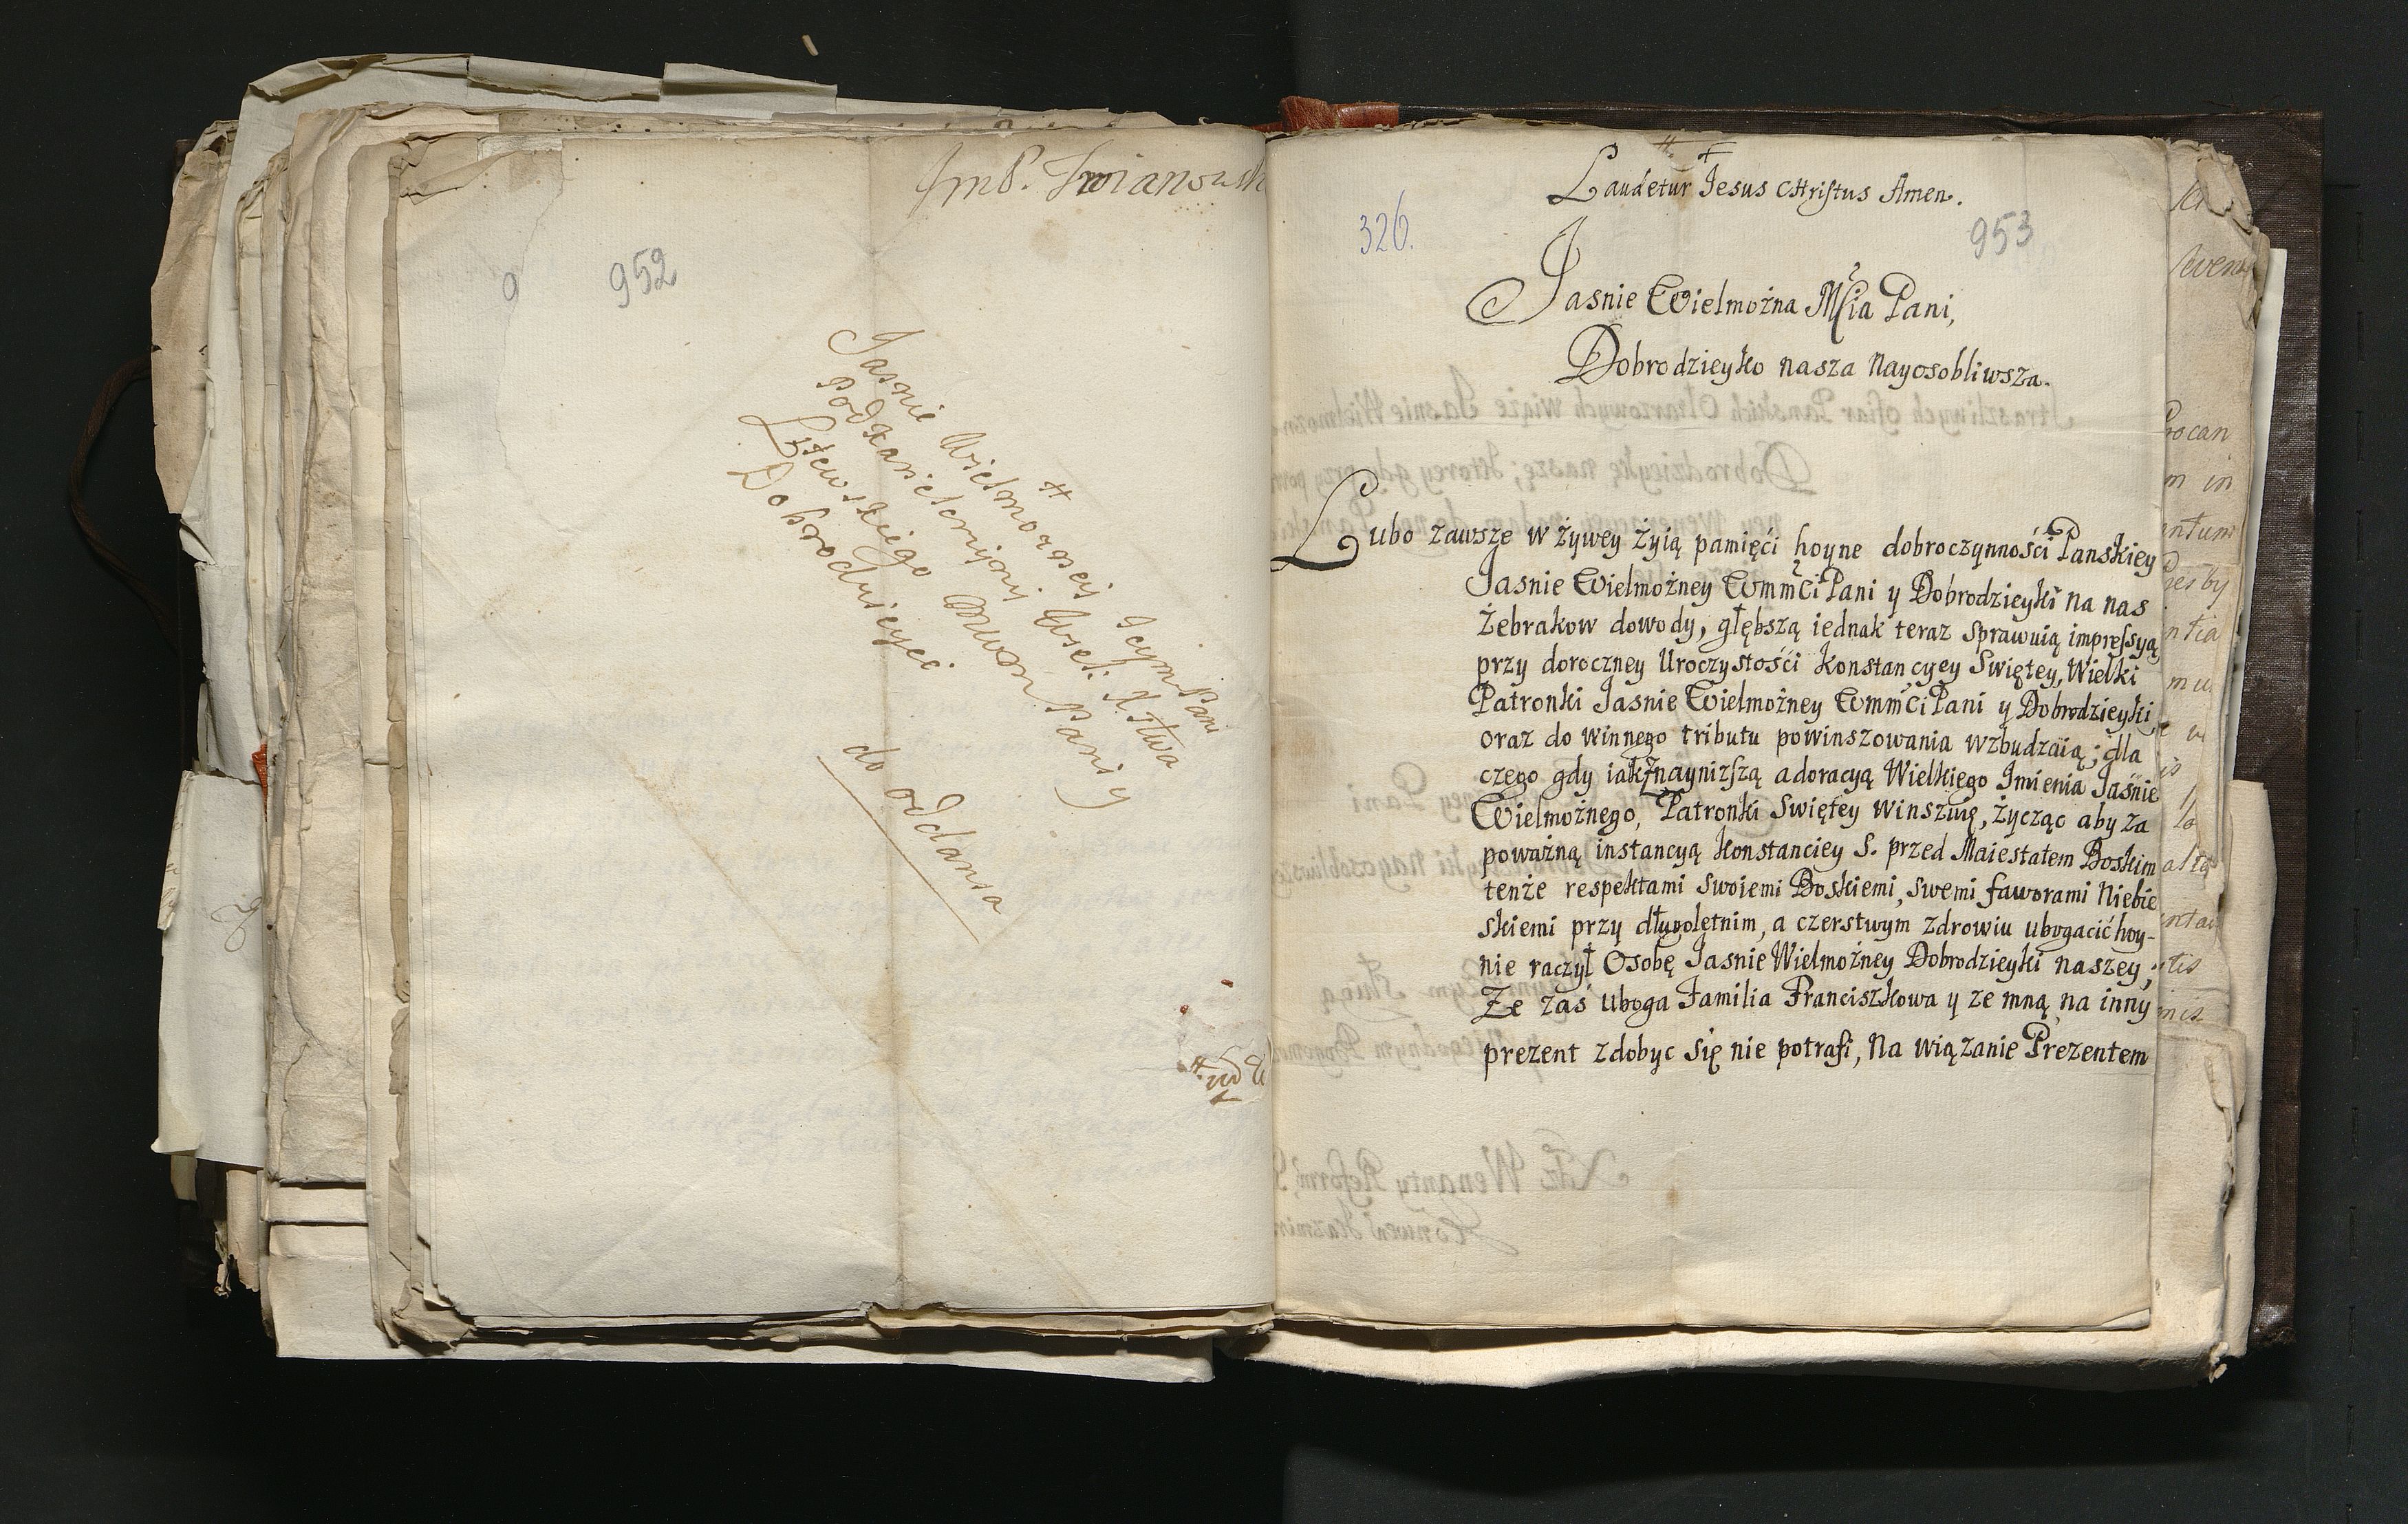 JmP.
952
Jasnie Wielmoznei Jeym Pani
Podkanclerzyni Wiel. X Ltwa
Litewskiego Mwm Paniy
Dobrodzieyce
do oddania
Laudetur Jesus Christus Amen.
326.
953
Jasnie Wielmożna Mścia Pani,
Dobrodzieyko nasza Nayosobliwsza.
Lubo zawsze w żywey żyią pamięći hoyne dobroczynnośći Panskiey
Jasnie Wielmożney WmmCi Pani y Dobrodzieyki na nas
Żebrakow dowody, głębszą iednak teraz sprawuią impressyą
przy doroczney Uroczystośći Konstancyey Swiętey, Wielki
Patronki Jasnie Wielmożney WmmCi Pani y Dobrodzieyki,
oraz do winnego tributu powinszowania wzbudzaią; dla
czego gdy iak naynizszą adoracyą Wielkiego Imienia Jaśnie
Wielmożnego, Patronki Swiętey winszuię, życząc aby za
poważną instancyą Konstanciey S. przed Maiestatem Boskim
tenże respektami swoiemi Boskiemi, swemi faworami Niebie
skiemi przy długoletnim, a czerstwym zdrowiu ubogacić hoy-
nie raczył Osobę Jasnie Wielmożney Dobrodzieyki naszey;
Ze zaś uboga Familia Franciszkowa y ze mną na inny
prezent zdobyc się nie potrafi, Na wiązanie Prezentem